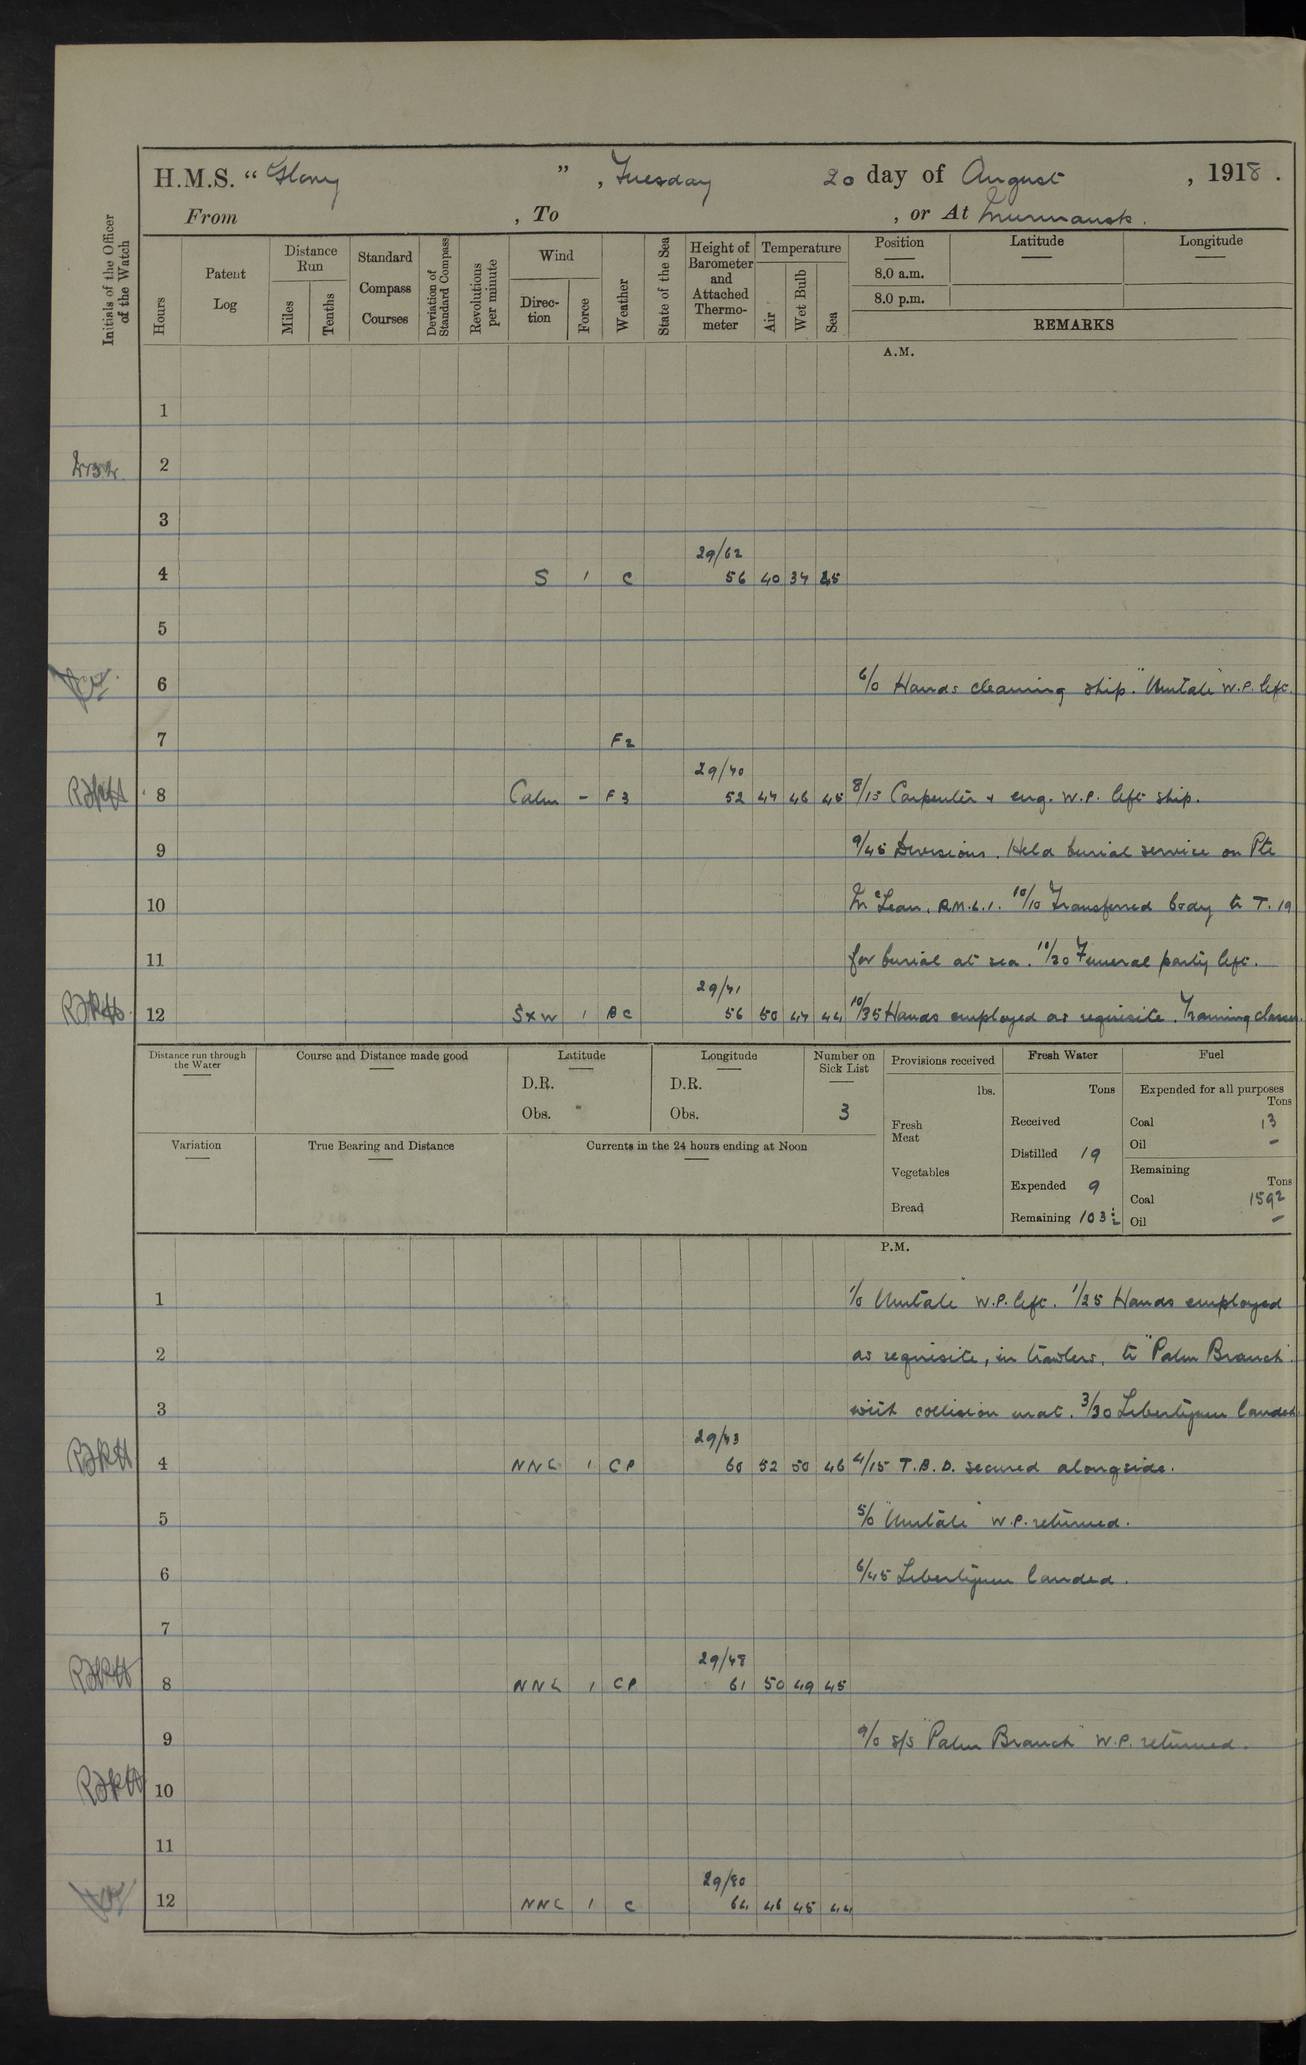 H.M.S. “ Glory ” , Tuesday 20 day of August , 1918 .
From , To , or At Murmansk .
Initials of the Officer of the Watch
Hours
Patent Log
Distance Run
Miles
Tenths
Standard Compass Courses
Deviation of Standard Compass
Revolutions per minute
Wind
Direc-tion
Force
Weather
State of the Sea
Height of Barometer and Attached Thermo-meter
Temperature
Air
Wet Bulb
Sea
Position Latitude Longitude
8.0 a.m.
8.0 p.m.
REMARKS
A.M.
1
2
3
29/62
4 S 1 C 56 40 37 45
5
6 6/0 Hands cleaning ship. "Umtali" W.P. left.
7 F2
29/40
8 Calm - F3 52 47 46 45 8/15 Carpenter & eng. W.P. left ship.
9 9/45 Divisions. Held burial service on Pte
10 McLean, R.M.L.I. 10/10 Transferred body to T. 19
11 for burial at sea. 10/20 Funeral party left.
29/41
12 SxW 1 BC 56 50 47 44 10/35 Hands employed as requisite. Training classes.
Distance run through the Water
Course and Distance made good
Latitude
D.R.
Obs.
Longitude
D.R.
Obs.
Number on Sick List
3
Provisions received
lbs.
Fresh Meat
Vegetables
Bread
Fresh Water
Tons
Received
Distilled 19
Expended 9
Remaining 103½
Fuel
Expended for all purposes
Tons
Coal 13
Oil -
Remaining
Tons
Coal 1592
Oil -
Variation
True Bearing and Distance
Currents in the 24 hours ending at Noon
P.M.
1 1/0 Umtali" W.P. left. 1/25 Hands employed
2 as requisite, in trawlers, to "Palm Branch"
3 with collision mat. 3/30 Libertymen landed.
29/43
4 NNE 1 CP 60 52 50 46 4/15 T.B.D. secured alongside.
5 5/0 "Umtali" W.P. returned.
6 6/45 Libertymen landed.
7
29/48
8 NNE 1 CP 61 50 49 45
9 9/0 S/S "Palm Branch" W.P. returned.
10
11
29/50
12 NNE 1 C 64 46 45 44